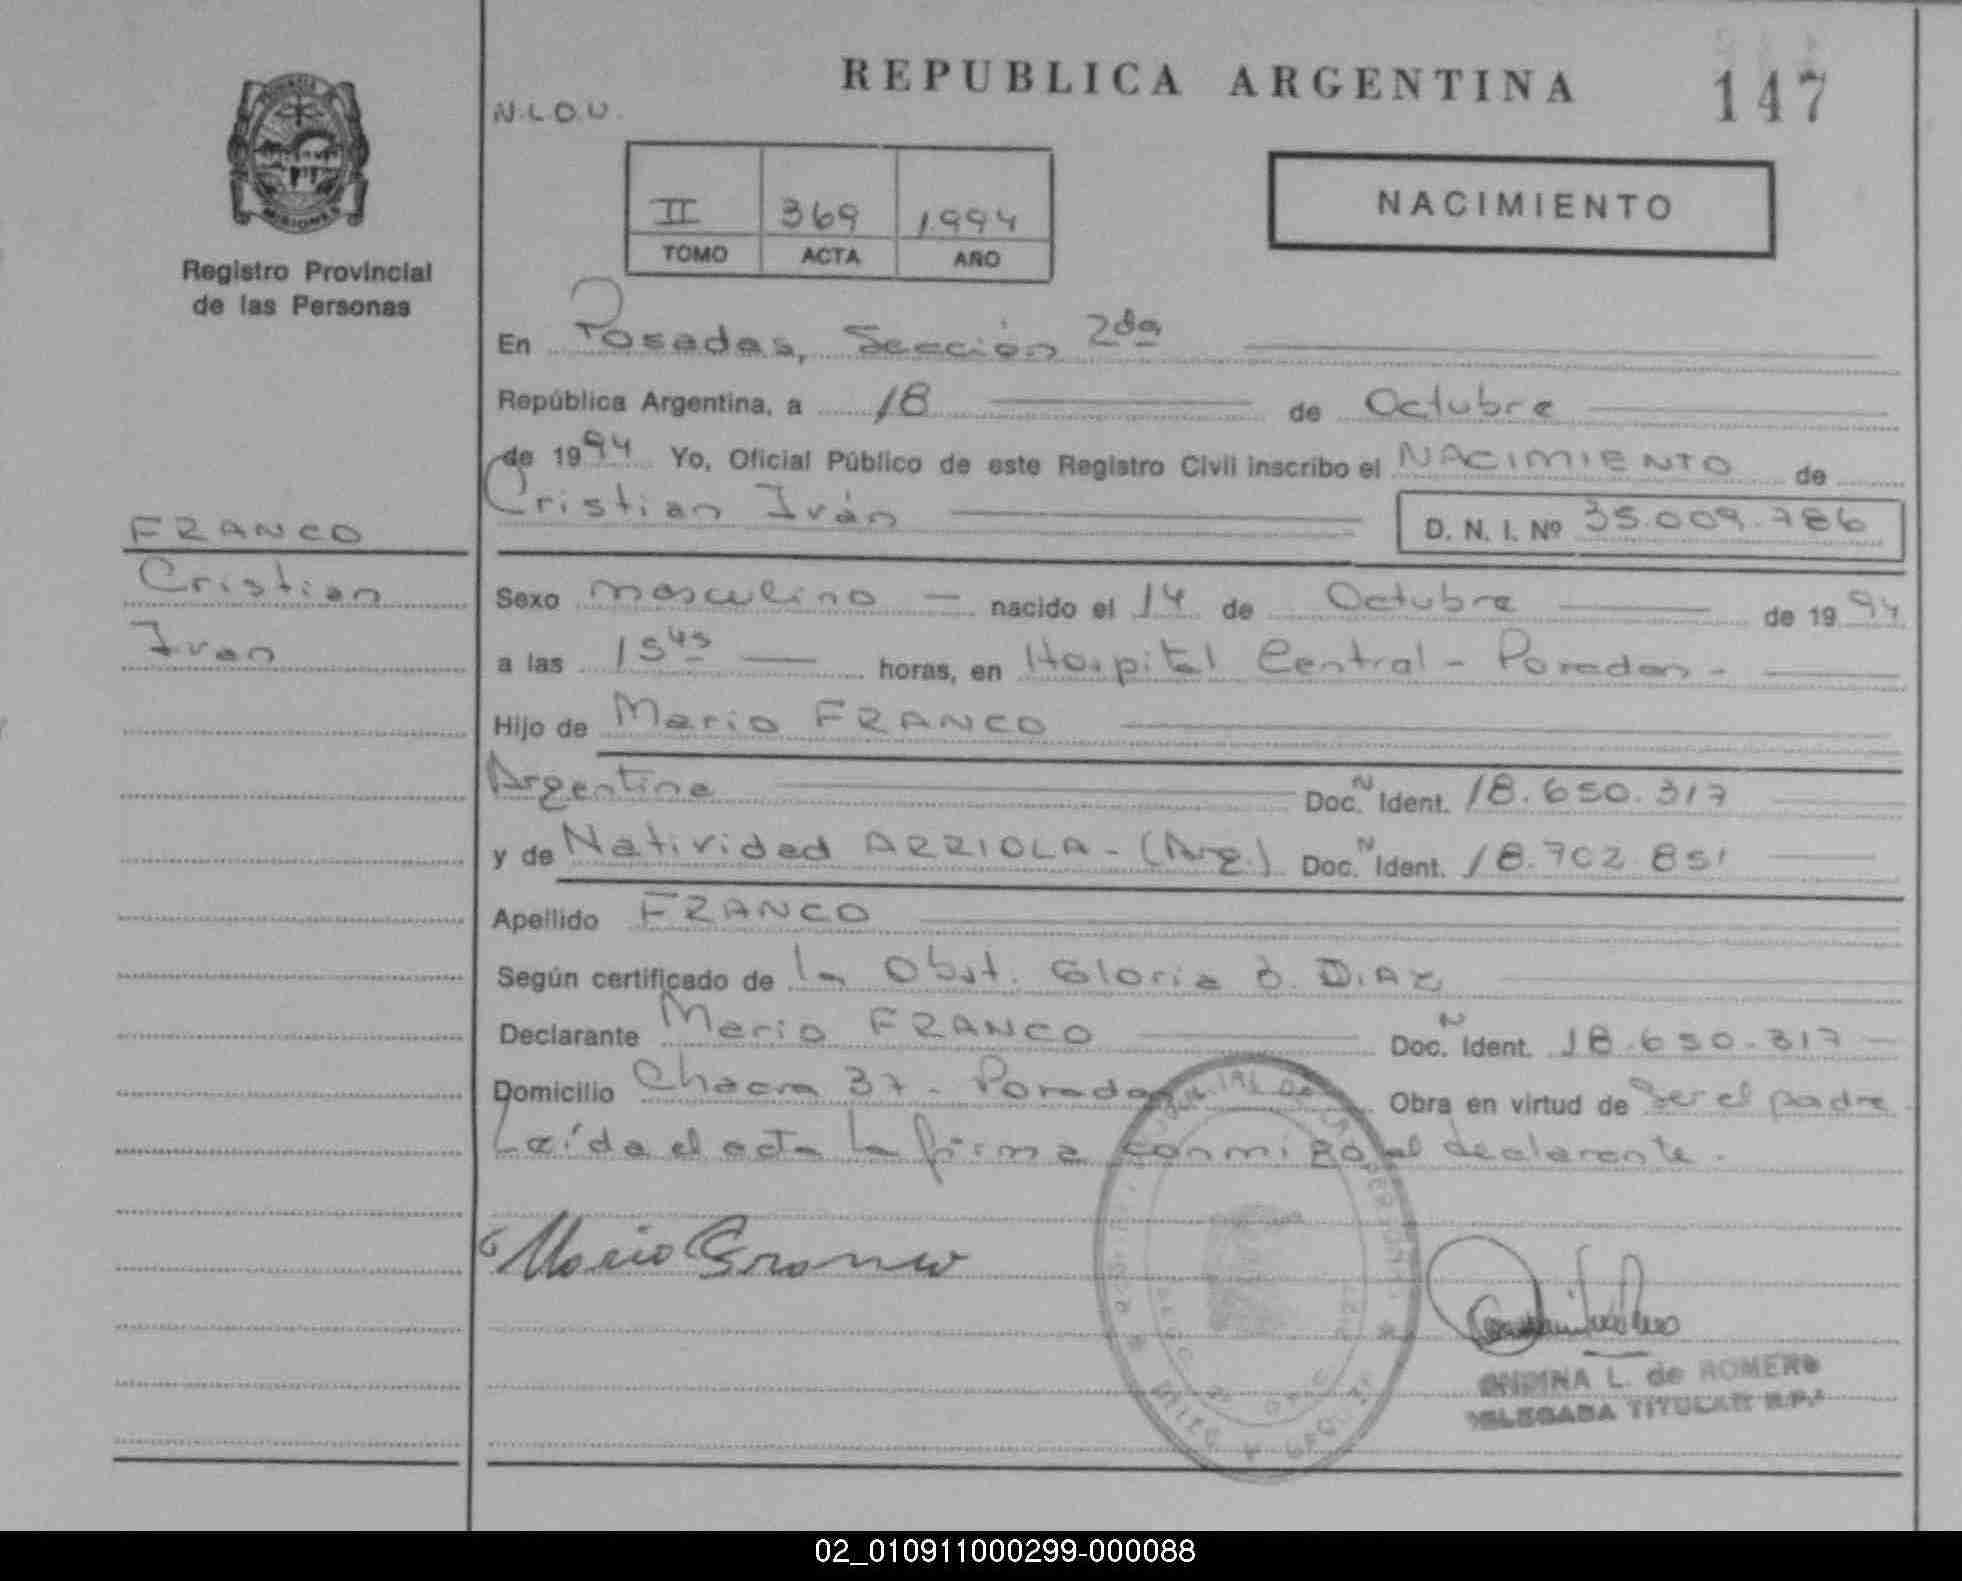 REPUBLICA ARGENTINA
147
N.L.O.U.
II 369 1.994
TOMO ACTA AÑO
NACIMIENTO
MISIONES
Registro Provincial
de las Personas
En Posadas, Sección 2da
República Argentina, a 18 de Octubre
de 1994 Yo, Oficial Público de este Registro Civil inscribo el NACIMIENTO de
Cristian Iván
D. N. I. Nº 35.009.786
FRANCO
Cristian
Ivan
Sexo masculino nacido el 14 de Octubre de 1994
a las 15 45 horas, en Hospital Central - Posadas -
Hijo de Mario FRANCO
Argentina Doc. N Ident. 18.650.317
y de Natividad ARRIOLA - (Arg.) Doc. N Ident. 18.702.851
Apellido FRANCO
Según certificado de la Obst. Gloria DIAZ
Declarante Mario FRANCO Doc. N Ident. 18.650.317
Domicilio Chacra 37 - Posadas Obra en virtud de ser el padre
Leída el acta la firma conmigo el declarante.
Mario Franco
L. de ROMERO
DELEGADA TITULAR R.P.
02_010911000299-000088